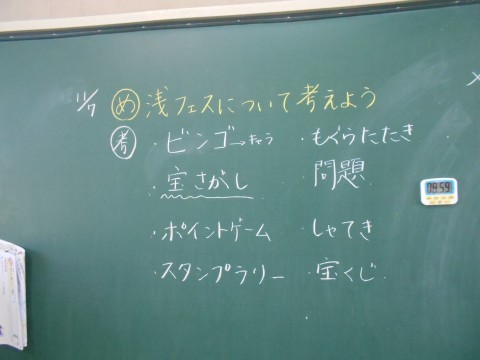 11/7 め 浅フェスについて考えよう
考 ・ビンゴ→キャラ ・もぐらたたき
・宝さがし 問題
・ポイントゲーム ・しゃてき
・スタンプラリー ・宝くじ